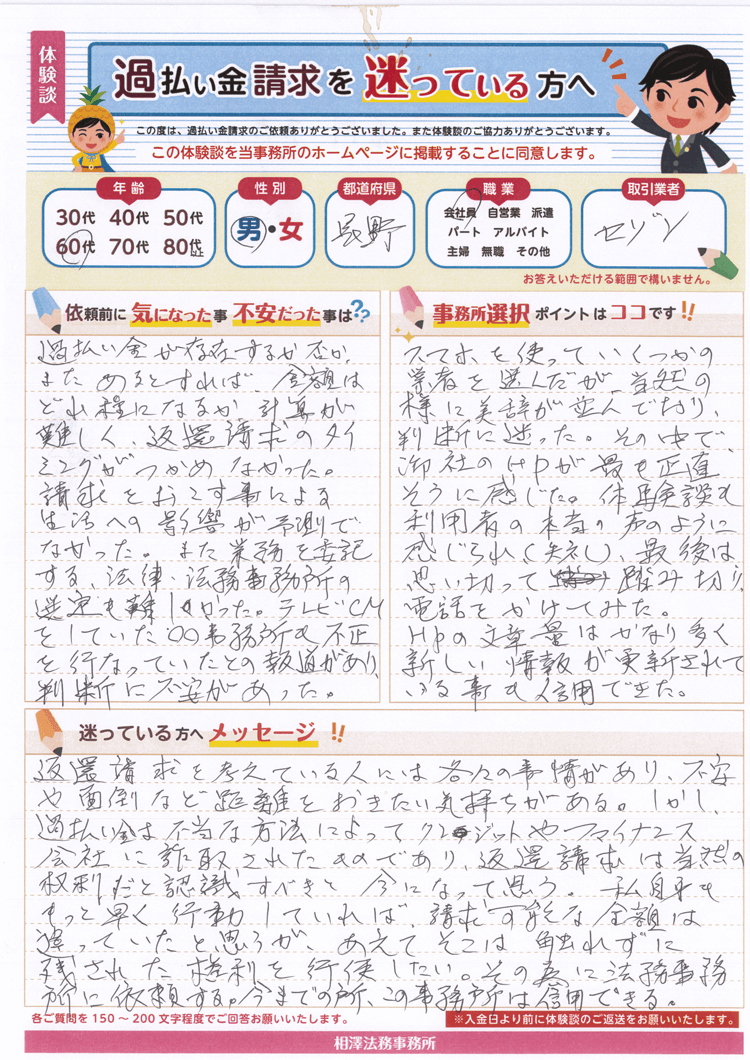 体験談
過払い金請求を迷っている方へ
この度は、過払い金請求のご依頼ありがとうございました。また体験談のご協力ありがとうございます。
この体験談を当事務所のホームページに掲載することに同意します。
年齢 性別 都道府県 職業 取引業者
30代 40代 50代
60代 70代 80代以上
男・女
長野
会社員 自営業 派遣
パート アルバイト
主婦 無職 その他
セゾン
お答えいただける範囲で構いません。
依頼前に気になった事不安だった事は??
過払い金が存在するか否か、
またあるとすれば、金額は
どれ程になるか計算が
難しく、返還請求のタイ
ミングがつかめなかった。
請求をおこす事による
生活への影響が予測で
きなかった。また業務を委託
する、法律・法務事務所の
選定も難しかった。テレビCM
をしていた○○事務所も不正
を行なっていたとの報道があり、
判断に不安があった。
事務所選択ポイントはココです!!
スマホを使っていくつかの
業者を選んだが、当然の
様に美辞が並んでおり、
判断に迷った。その中で、
御社のHPが最も正直
そうに感じた。体験談も
利用者の本当の声のように
感じられ(失礼)、最後は
思い切って 踏み切り、
電話をかけてみた。
HPの文章量はかなり多く
新しい情報が更新されて
いる事も信用できた。
迷っている方へメッセージ!!
返還請求を考えている人には各々の事情があり、不安
や面倒など距離をおきたい気持ちがある。しかし、
過払い金は不当な方法によってクレジットやファイナンス
会社に詐取されたものであり、返還請求は当然の
権利だと認識すべきと今になって思う。私自身も
もっと早く行動していれば、請求可能な金額は
違っていたと思うが、あえてそこは触れずに
残された権利を行使したい。その為に法務事務
所に依頼する。今までの所、この事務所は信用できる。
各ご質問を150~200文字程度でご回答お願いいたします。
※入金日より前に体験談のご返送をお願いいたします。
相澤法務事務所